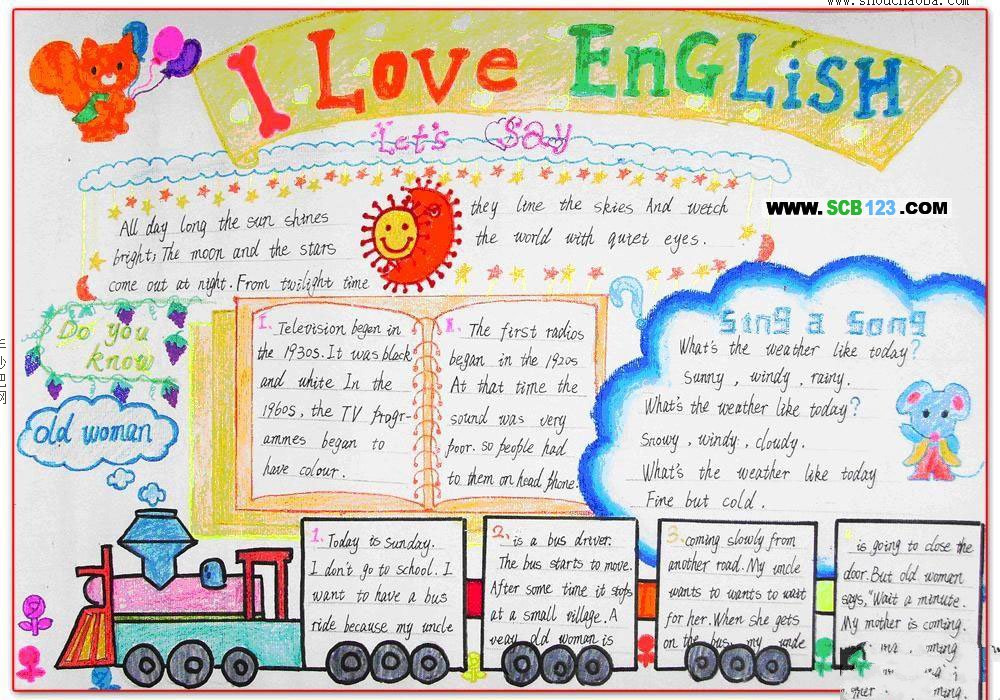 www.shouchaoba.com
I Love English
Let's say
All day long the sun shines
bright; The moon and the stars
come out at night. From twilight time
they line the skies And wetch
the world with quiet eyes.
WWW.SCB123.COM
Do you
know
old woman
1. Television began in
the 1930s. It was black
and white In the
1960s, the TV progr-
ammes began to
have colour.
The first radios
began in the 1920s
At that time the
sound was very
poor. so people had
to them on head phone.
Sing a song
What's the weather like today?
Sunny, windy, rainy.
What's the weather like today?
Snowy, windy, cloudy.
What's the weather like today
Fine but cold.
1. Today is Sunday.
I don't go to school. I
want to have a bus
ride because my uncle
2. is a bus driver.
The bus starts to move.
After some time it stops
at a small village. A
veay old woman is
3. coming slowly from
another road. My uncle
wants to wants to wait
for her. When she gets
on the bus, my uncle
is going to close the
door. But old woman
says, "Wait a minute.
My mother is coming.